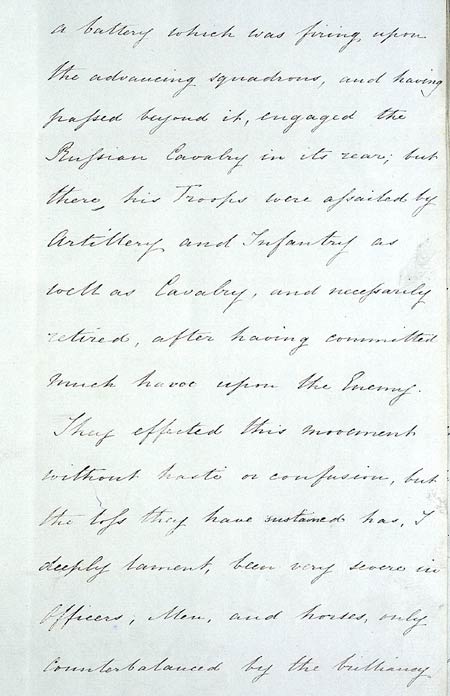 a battery which was firing upon
the advancing squadrons, and having
paſsed beyond it, engaged the
Ruſsian Cavalry in its rear; but
there, his Troops were aſsailed by
Artillery and Infantry as
well as Cavalry, and neceſsarily
retired, after having committed
much havoc upon the Enemy.
They effected this movement
without haste or confusion, but
the loſs they have sustained has, I
deeply lament, been very severe in
Officers, Men, and horses, only
counterbalanced by the brilliancy